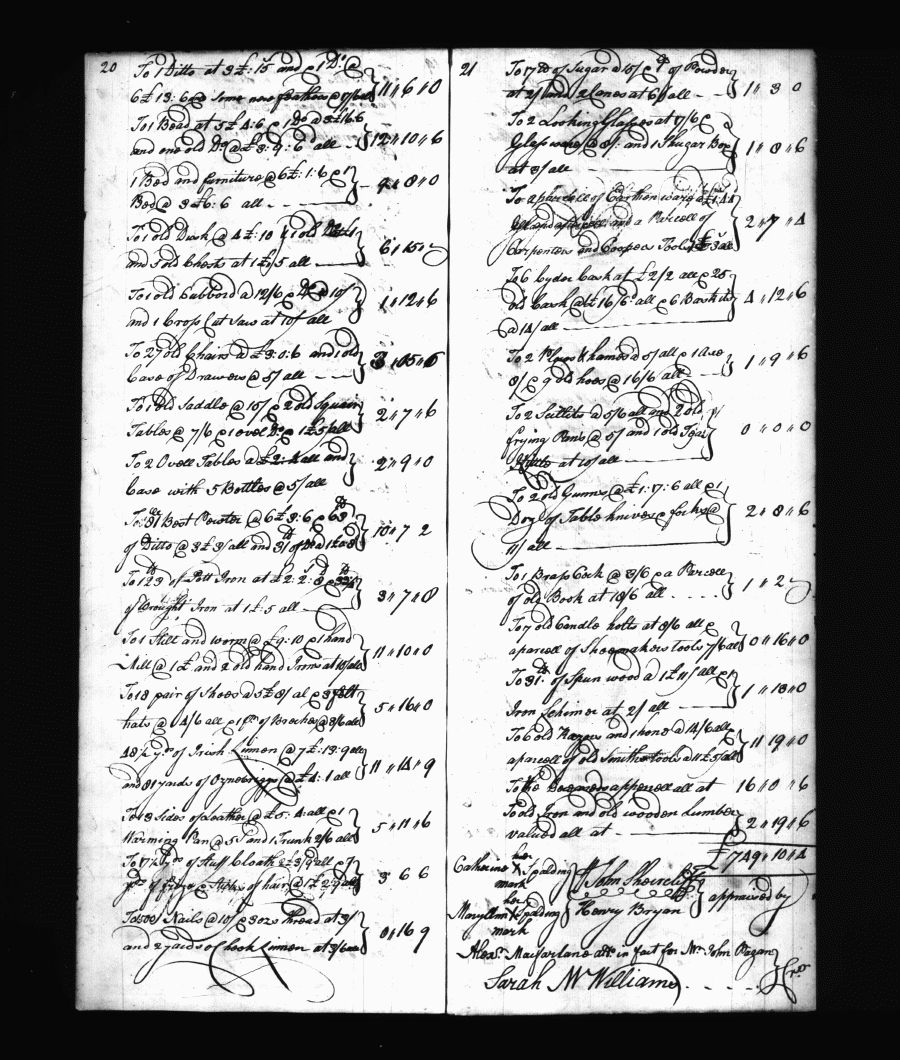 20
To 1 Ditto at 3£: 15 and p 1 Do @
6£ 13: 6 @ Some new feathers @ all 11 " 6 " 0
To 1 Bead at 5£ 4: 6 p 1 Do @ 3£ 16 6
and one old Do @ £3: 9: 6 all 12 " 10 " 6
1 Bed and furniture @ 6£: 1: 6 p 1
Bed @ 3£ 6: 6 all 9 " 8 " 0
To 1 old Desk @ 4£: 10 1 old
and 3 old Chests at 1£ 5 all 6 " 15 "
To 1 old Cubbord a 12/6 p @ 10/
and 1 Cross Cut Saw at 10/ all 1 " 12 " 6
To 27 old Chairs @ £3: 0: 6 and 1 old
Case of Drawers @ 5/ all 3 " 05 " 6
To 1 old Saddle @ 15/ p 2 old Square
Tables @ 7/6 p 1 ovel Do @ 1£ 5/all 2 " 7 " 6
To 2 Ovell Tables a £2: 4 all and
Case with 5 Bottles @ 5/ all 2 " 9 " 0
To 81 lb Best Pewter @ 6£ 3: 6 p 63 lb
of Ditto @ 3£ 3/ all and 31 lb of Do @ 10 " 7 2
To 123 lb of Pott Iron at £2: 2: 8 p
of Wrought Iron at 1£: 5 all 3 " 7 " 8
To 1 Still and worm @ £9: 10 p 1 hand
Mill @ 1£ and 2 old hand Irons at 10/all 11 " 10 " 0
To 18 pair of Shoes @ 5£ 8/ al p 3 felt
hats @ 4/6 all p 1 pr of Breeches @ 3/6 all 5 " 16 " 0
48 1/2 yds of Irish Linnen @ 7£: 13: 9 all
and 81 yards of Oznebriggs @ £4: 1 all 11 " 14 " 9
To 13 Sides of Leather @ £5: 4: all p 1
Warming Pan @ 5/ and 1 Trunk 2/6 all 5 " 11 " 6
To 17 1/2 yds of Stuff Cloath a £ 3/9 all p 7
yds of frize p Sticks of hair @ 1£ 2: 9 all 3 6 6
To 500 Nails @ 10/ p 3 ozs Thread at 3/
and 2 yards of book Linnen at 3/6 all 0 " 16 9
21
To 17 lb of Sugar a 15/ p lb of Powder
at 2/ and 2 Cones at 6/ all 1 " 3 0
To 2 Looking Glasses at 17/6 p
Glass ware @ 8/: and 1 Shugar Box
at 3/ all 1 " 8 " 6
To a parcell of Earthen ware a £1: 4: 4
and a Parcell of
Carpenters and Coopers Tools all 2 " 7 " 4
To 6 Cyder Cask at £2/2 all p 25
old Cask @ £1 16/6 all p 6 Baskets
@ 14/ all 4 " 12 " 6
To 2 Plows & hames @ 5/ all p 1 axe
8/ p 9 old hoes @ 16/6 all 1 " 9 " 6
To 2 Skillets @ 5/6 all and 2 old
frying Pans @ 5/ and 1 old Tea
Kettle at 10/ all 0 " 0 " 0
To 2 old Gunns @ £1: 17: 6 all p 1
Doz of Table knives p forks @
11/ all 2 " 8 " 6
To 1 Brass Cock @ 3/6 p a Parcell
of old Book at 18/6 all 1 " 2
To 7 old Candle holts at 8/6 all p
a parcell of Shoemakers Tools 7/6 all 0 " 16 " 0
To 31 lb of Spun wood a 1£ 11/ all p 1
Iron Schimer at 2/ all 1 " 13 " 0
To 6 old Razors and 1 hone @ 14/6 all
a parcell of old Smiths tools a 11£ 5/all 11 19 " 0
To the appraised all at 16 " 0 " 6
To old Iron and old wooden Lumber
valued all at 2 " 19 " 6
£749 " 10 " 4
her
Catharine X Spalding John
mark
her appraised by
Mary Ann X Spalding Henry Bryan
mark
Alexr Macfarlane att. in fact for Mr John Pagan
Sarah McWilliams Crs